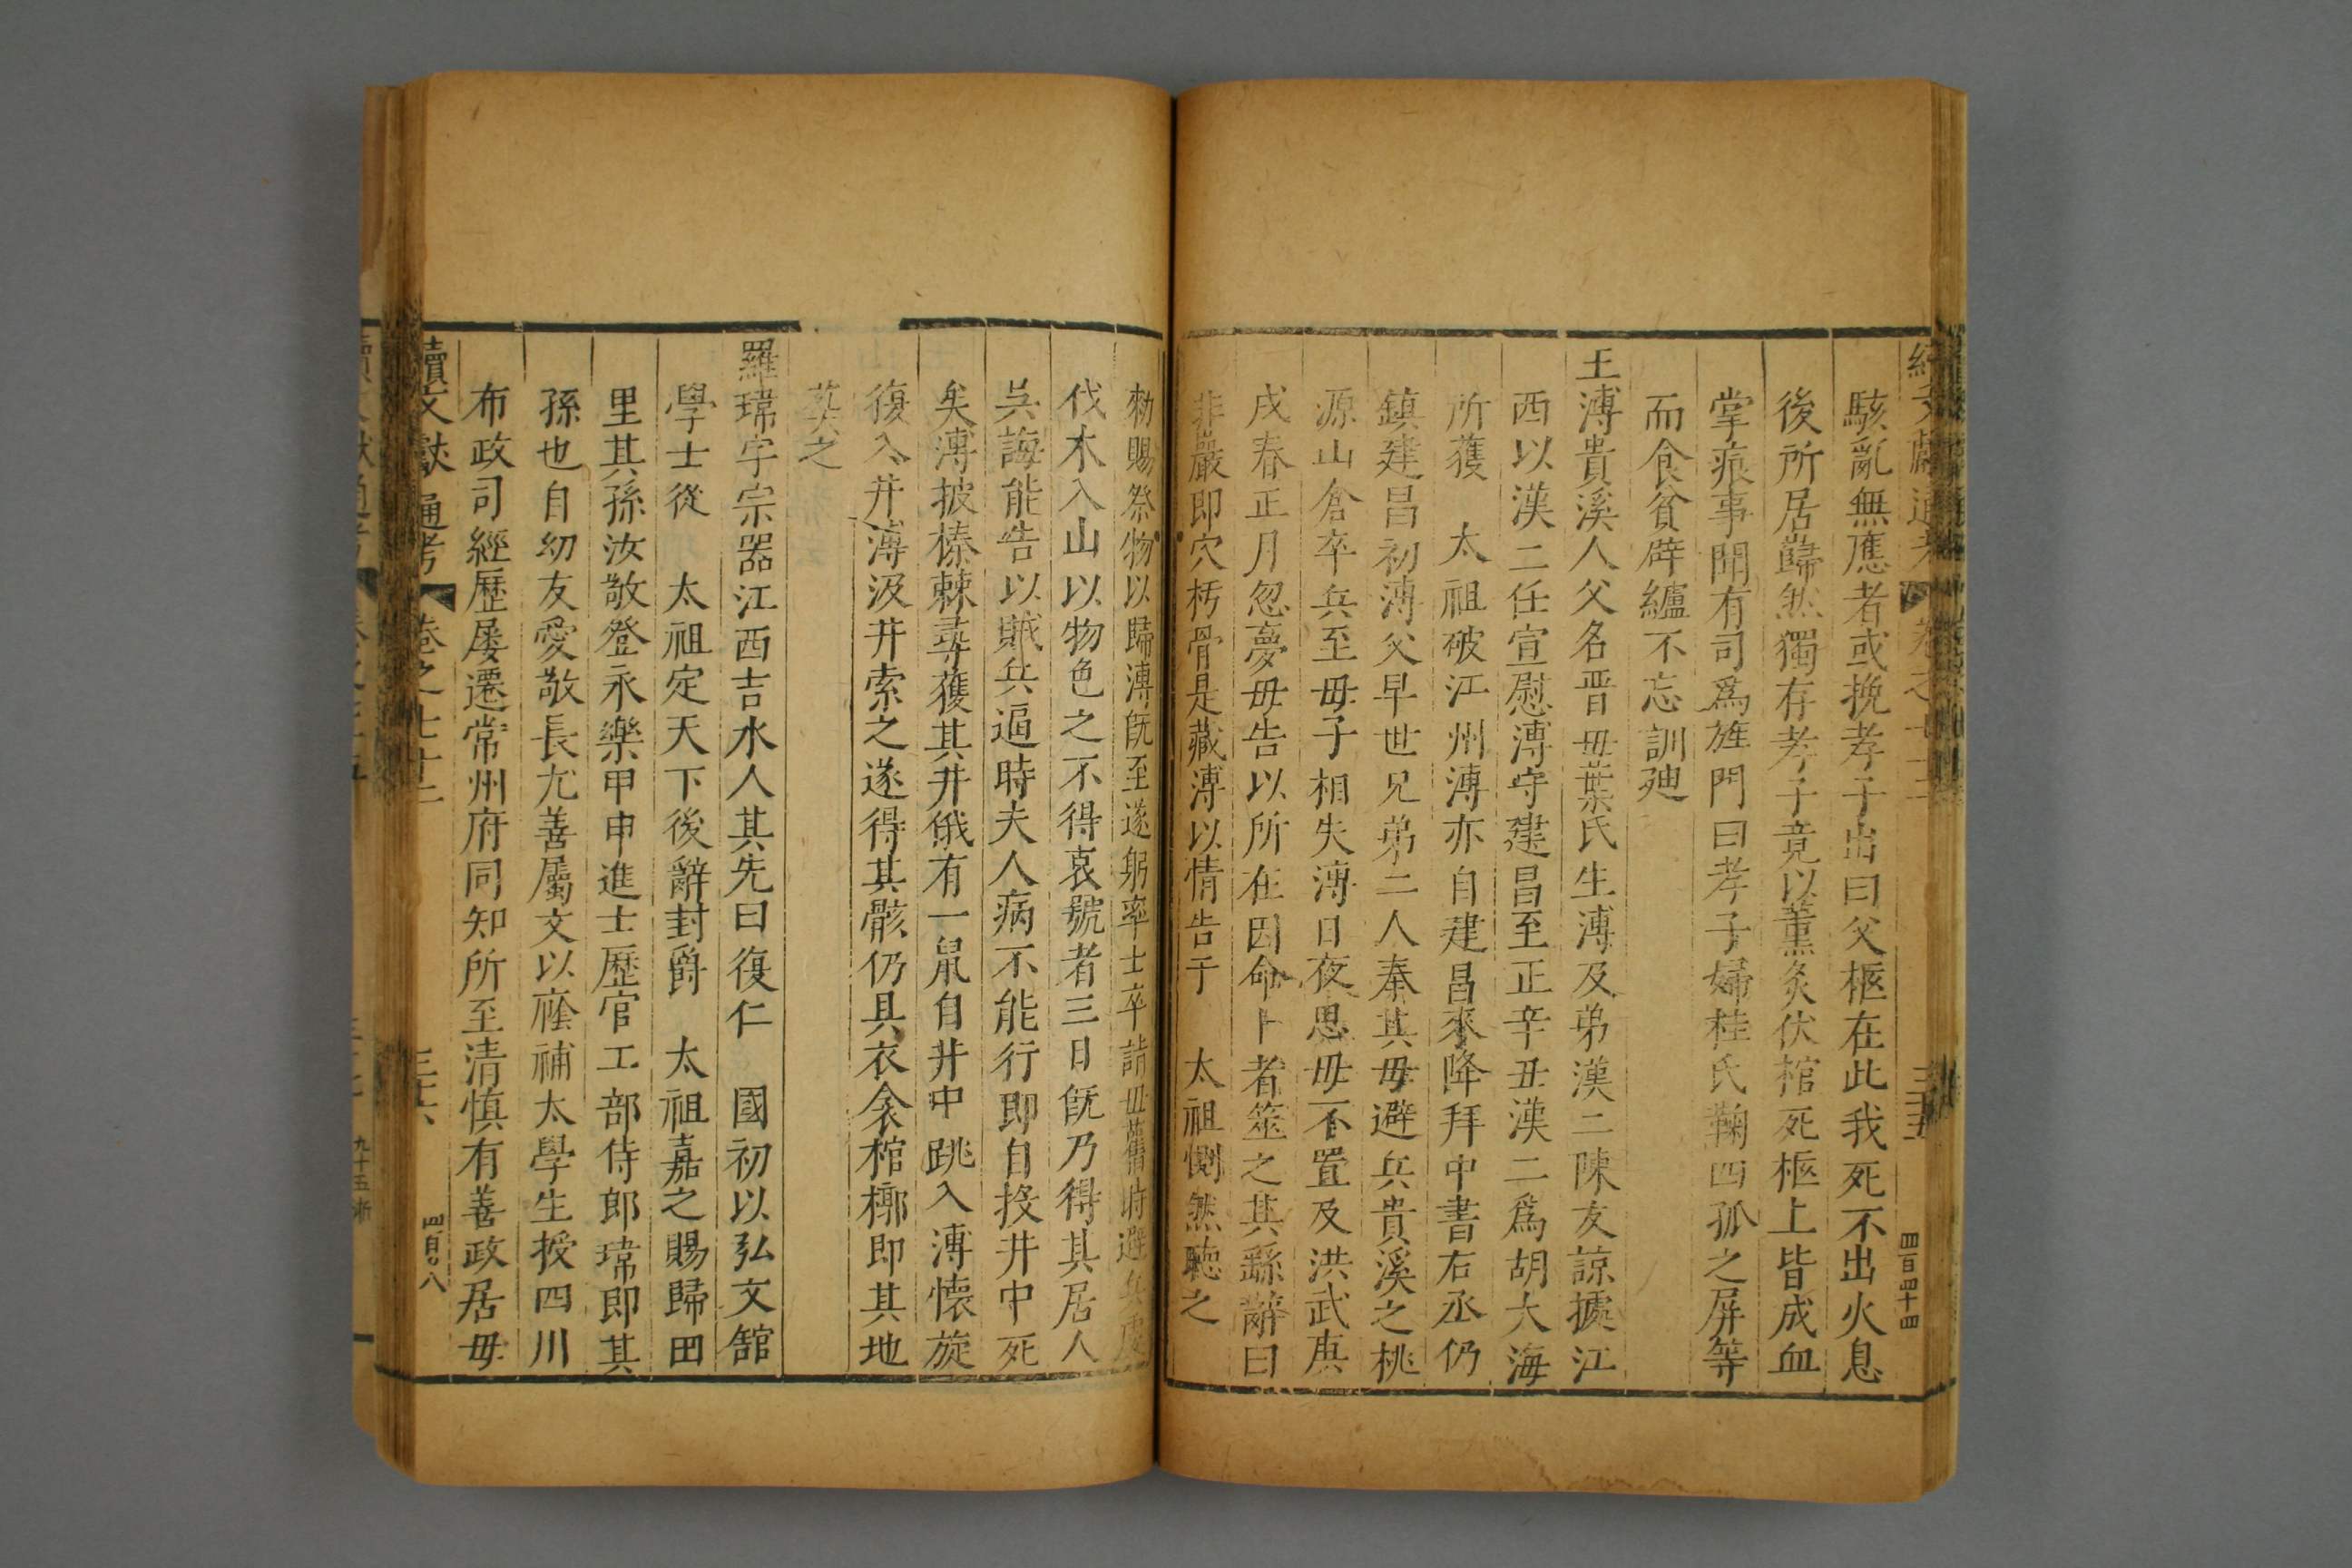 駭亂無應者或挽孝子出曰父柩在此我死不出火息
後所居巋然獨存孝子竟以薰灸伏棺死柩上皆成血
掌痕事聞有司爲旌門曰孝子婦桂氏鞠四孤之屏等
而食貧辟纑不忘訓廸
王溥貴溪人父名晋毋葉氏生溥及弟漢二陳友諒據江
西以漢二任宣慰溥守建昌至正辛丑漢二爲胡大海
所獲 太祖破江州溥亦自建昌來降拜中書右丞仍
鎮建昌初溥父早世兄弟二人奉其毋避兵貴溪之桃
源山倉卒兵至毋子相失溥日夜思毋不置及洪武庚
戌春正月忽夢毋告以所在因命卜者筮之其繇辭曰
非巖即穴朽骨是藏溥以情告于 太祖惻然聽之
勑賜祭物以歸溥旣至遂躬率士卒詣毋舊時避兵處
伐木入山以物色之不得哀號者三日旣乃得其居人
吳海能告以賊兵逼時夫人病不能行即自投井中死
矣溥披榛棘尋獲其井俄有一鼠自井中跳入溥懷旋
復入井溥汲井索之遂得其骸仍具衣衾棺槨即其地
葬之
羅瑺字宗器江西吉水人其先曰復仁 國初以弘文舘
學士從 太祖定天下後辭封爵 太祖嘉之賜歸田
里其孫汝敬登永樂甲申進士歷官工部侍郎瑺即其
孫也自幼友愛敬長尤善屬文以廕補太學生授四川
布政司經歷屡遷常州府同知所至清慎有善政居毋
續文獻通考 卷之七十二 三十六